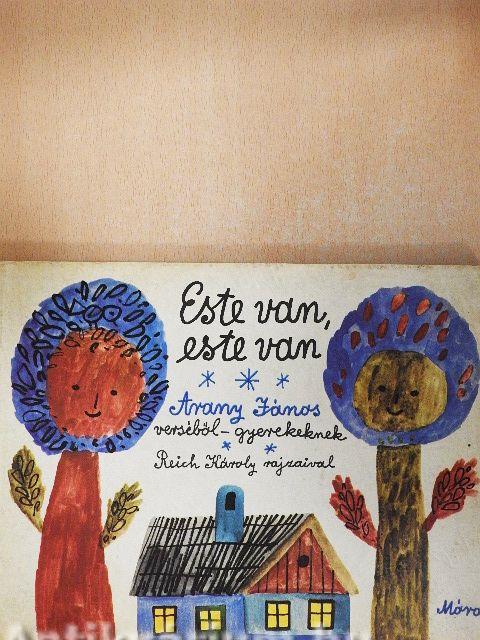 Este van,
este van
Arany János
verséből – gyerekeknek
Reich Károly rajzaival
Móra